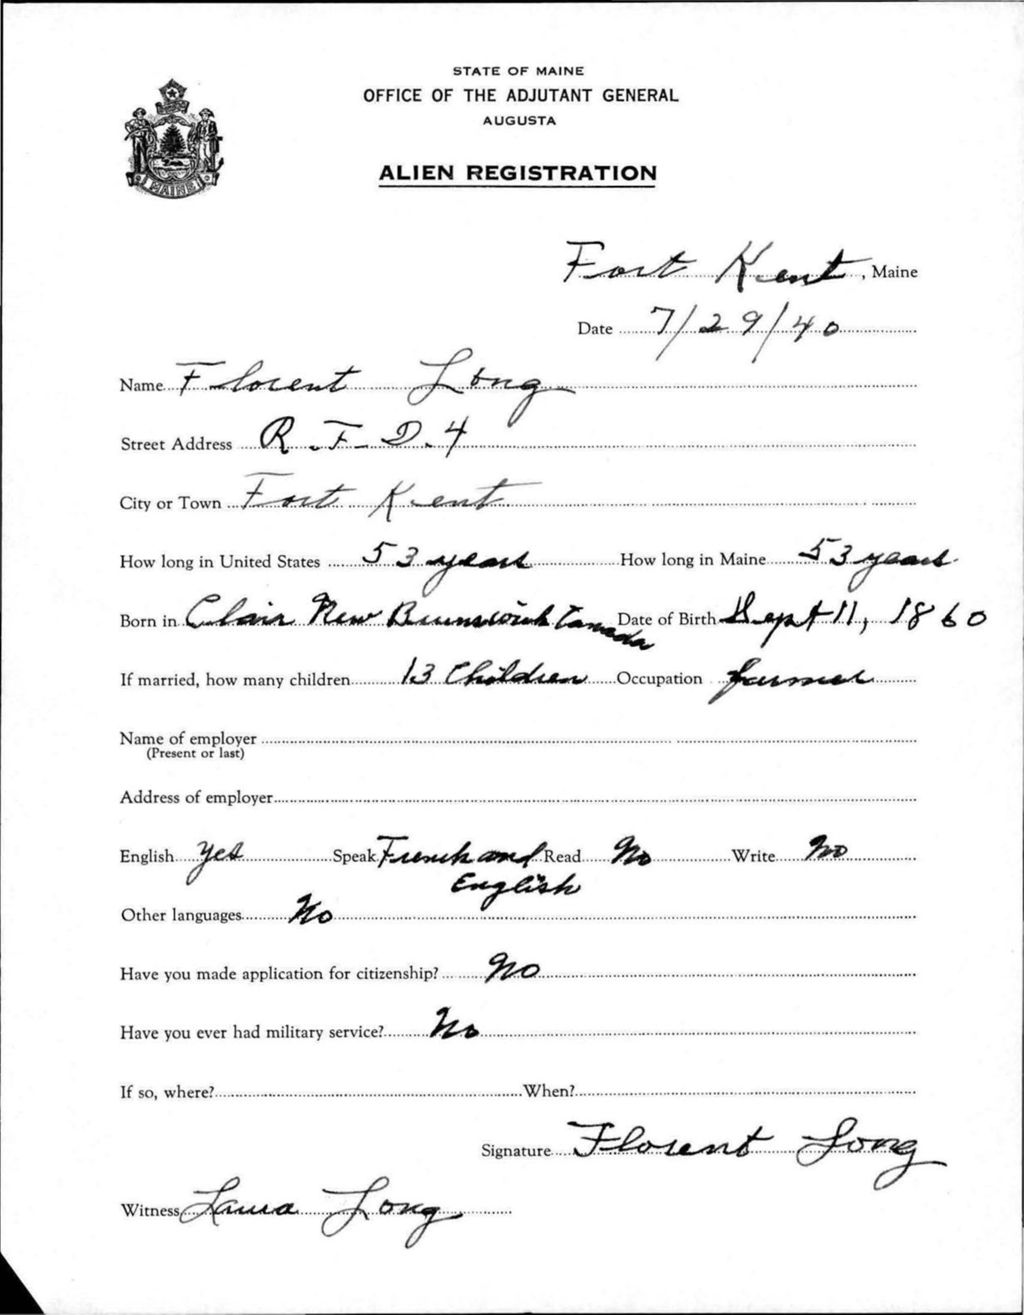 STATE OF MAINE
OFFICE OF THE ADJUTANT GENERAL
AUGUSTA
ALIEN REGISTRATION
MAINE
Fort Kent, Maine
Date 7/29/40
Name Florent Long
Street Address R.F.D. 4
City or Town Fort Kent
How long in United States 53 years How long in Maine 53 years
Born in Clair New Brunswick Canada Date of Birth Sept 11, 1860
If married, how many children 13 Children Occupation farmer
Name of employer
(Present or last)
Address of employer
English Yes Speak French and English Read No Write No
Other languages No
Have you made application for citizenship? No
Have you ever had military service? No
If so, where? When?
Signature Florent Long
Witness Laura Long